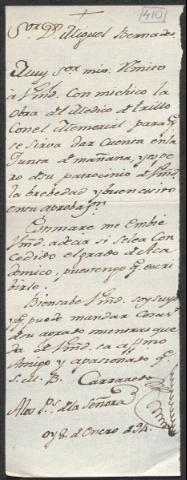 410
Sor. Dn. Miguel Bernades.
Muy Sor. mio: Remito
à Vmd. con mi chico la
obra del Medico de Trillo
con el Memorial para qe.
se sirva dar cuenta en la
Junta de mañana, y espe
ro de su patrocinio de Vmd.
la brebedad y buen exito
en su aprobazn.
En mare me embie
Vmd. à decir si se le à con
cedido el grado de Aca
demico, pues tengo qe. escri
birle.
Bien sabe Vmd. soy suyo
y qe. puede mandar cosas
de su agrado mientras que
da de Vmd. su affmo
Amigo y apasionado qe.
s. M. B. Carranza
A los Ps. de la Señora
oy 8 de Enero de 94.